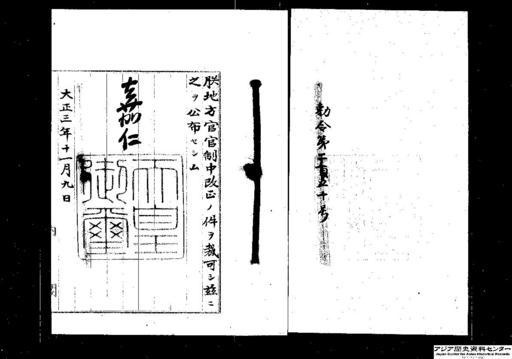 勅令第二百五十号
朕地方官官制中改正ノ件ヲ裁可シ茲ニ
之ヲ公布セシム
嘉仁
天皇御璽
大正三年十一月九日
内閣
アジア歴史資料センター
Japan Center for Asian Historical Records